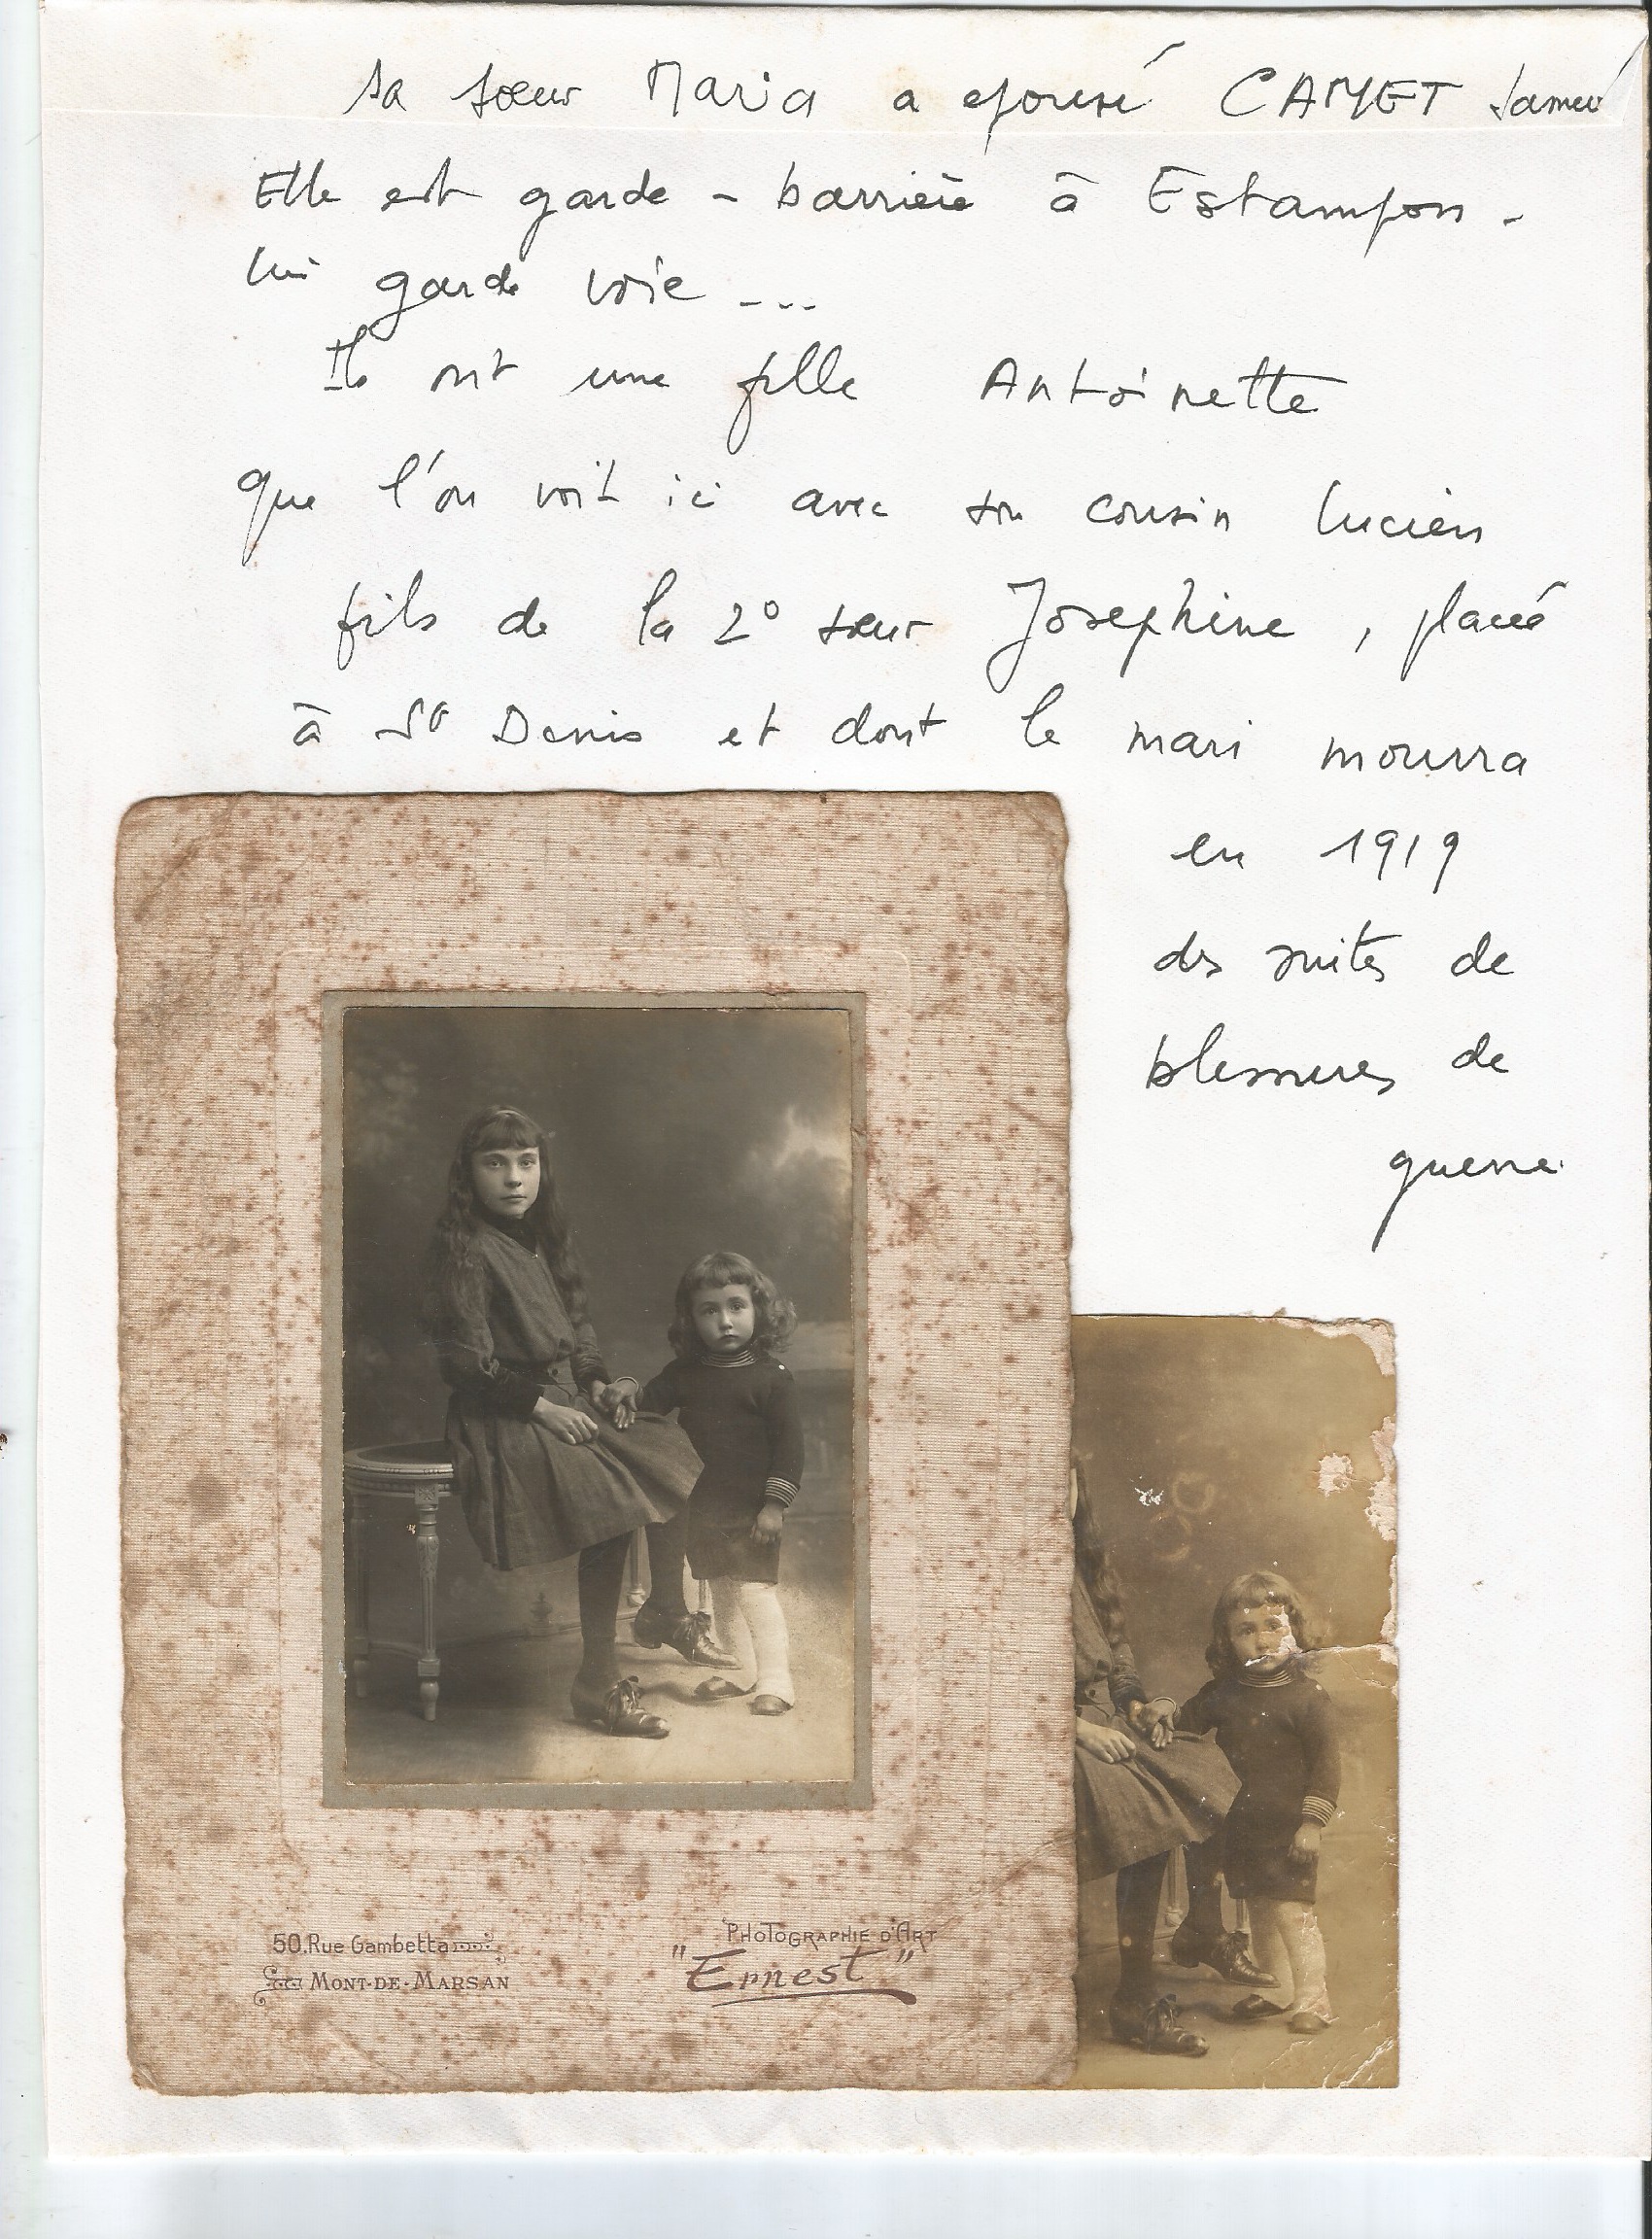 sa sœur Maria a epousé CAMET
Elle est garde - barrière à Estampon -
lui garde voie ---
Ils ont une fille Antoinette
que l'on voit ici avec son cousin Lucien
fils de la 2° sœur Josephine, placée
à St Denis et dont le mari mourra
en 1919
des suites de
blessures de
guerre.
50.Rue Gambetta
MONT-DE-MARSAN
PHOTOGRAPHIE D'ART
"Ernest"